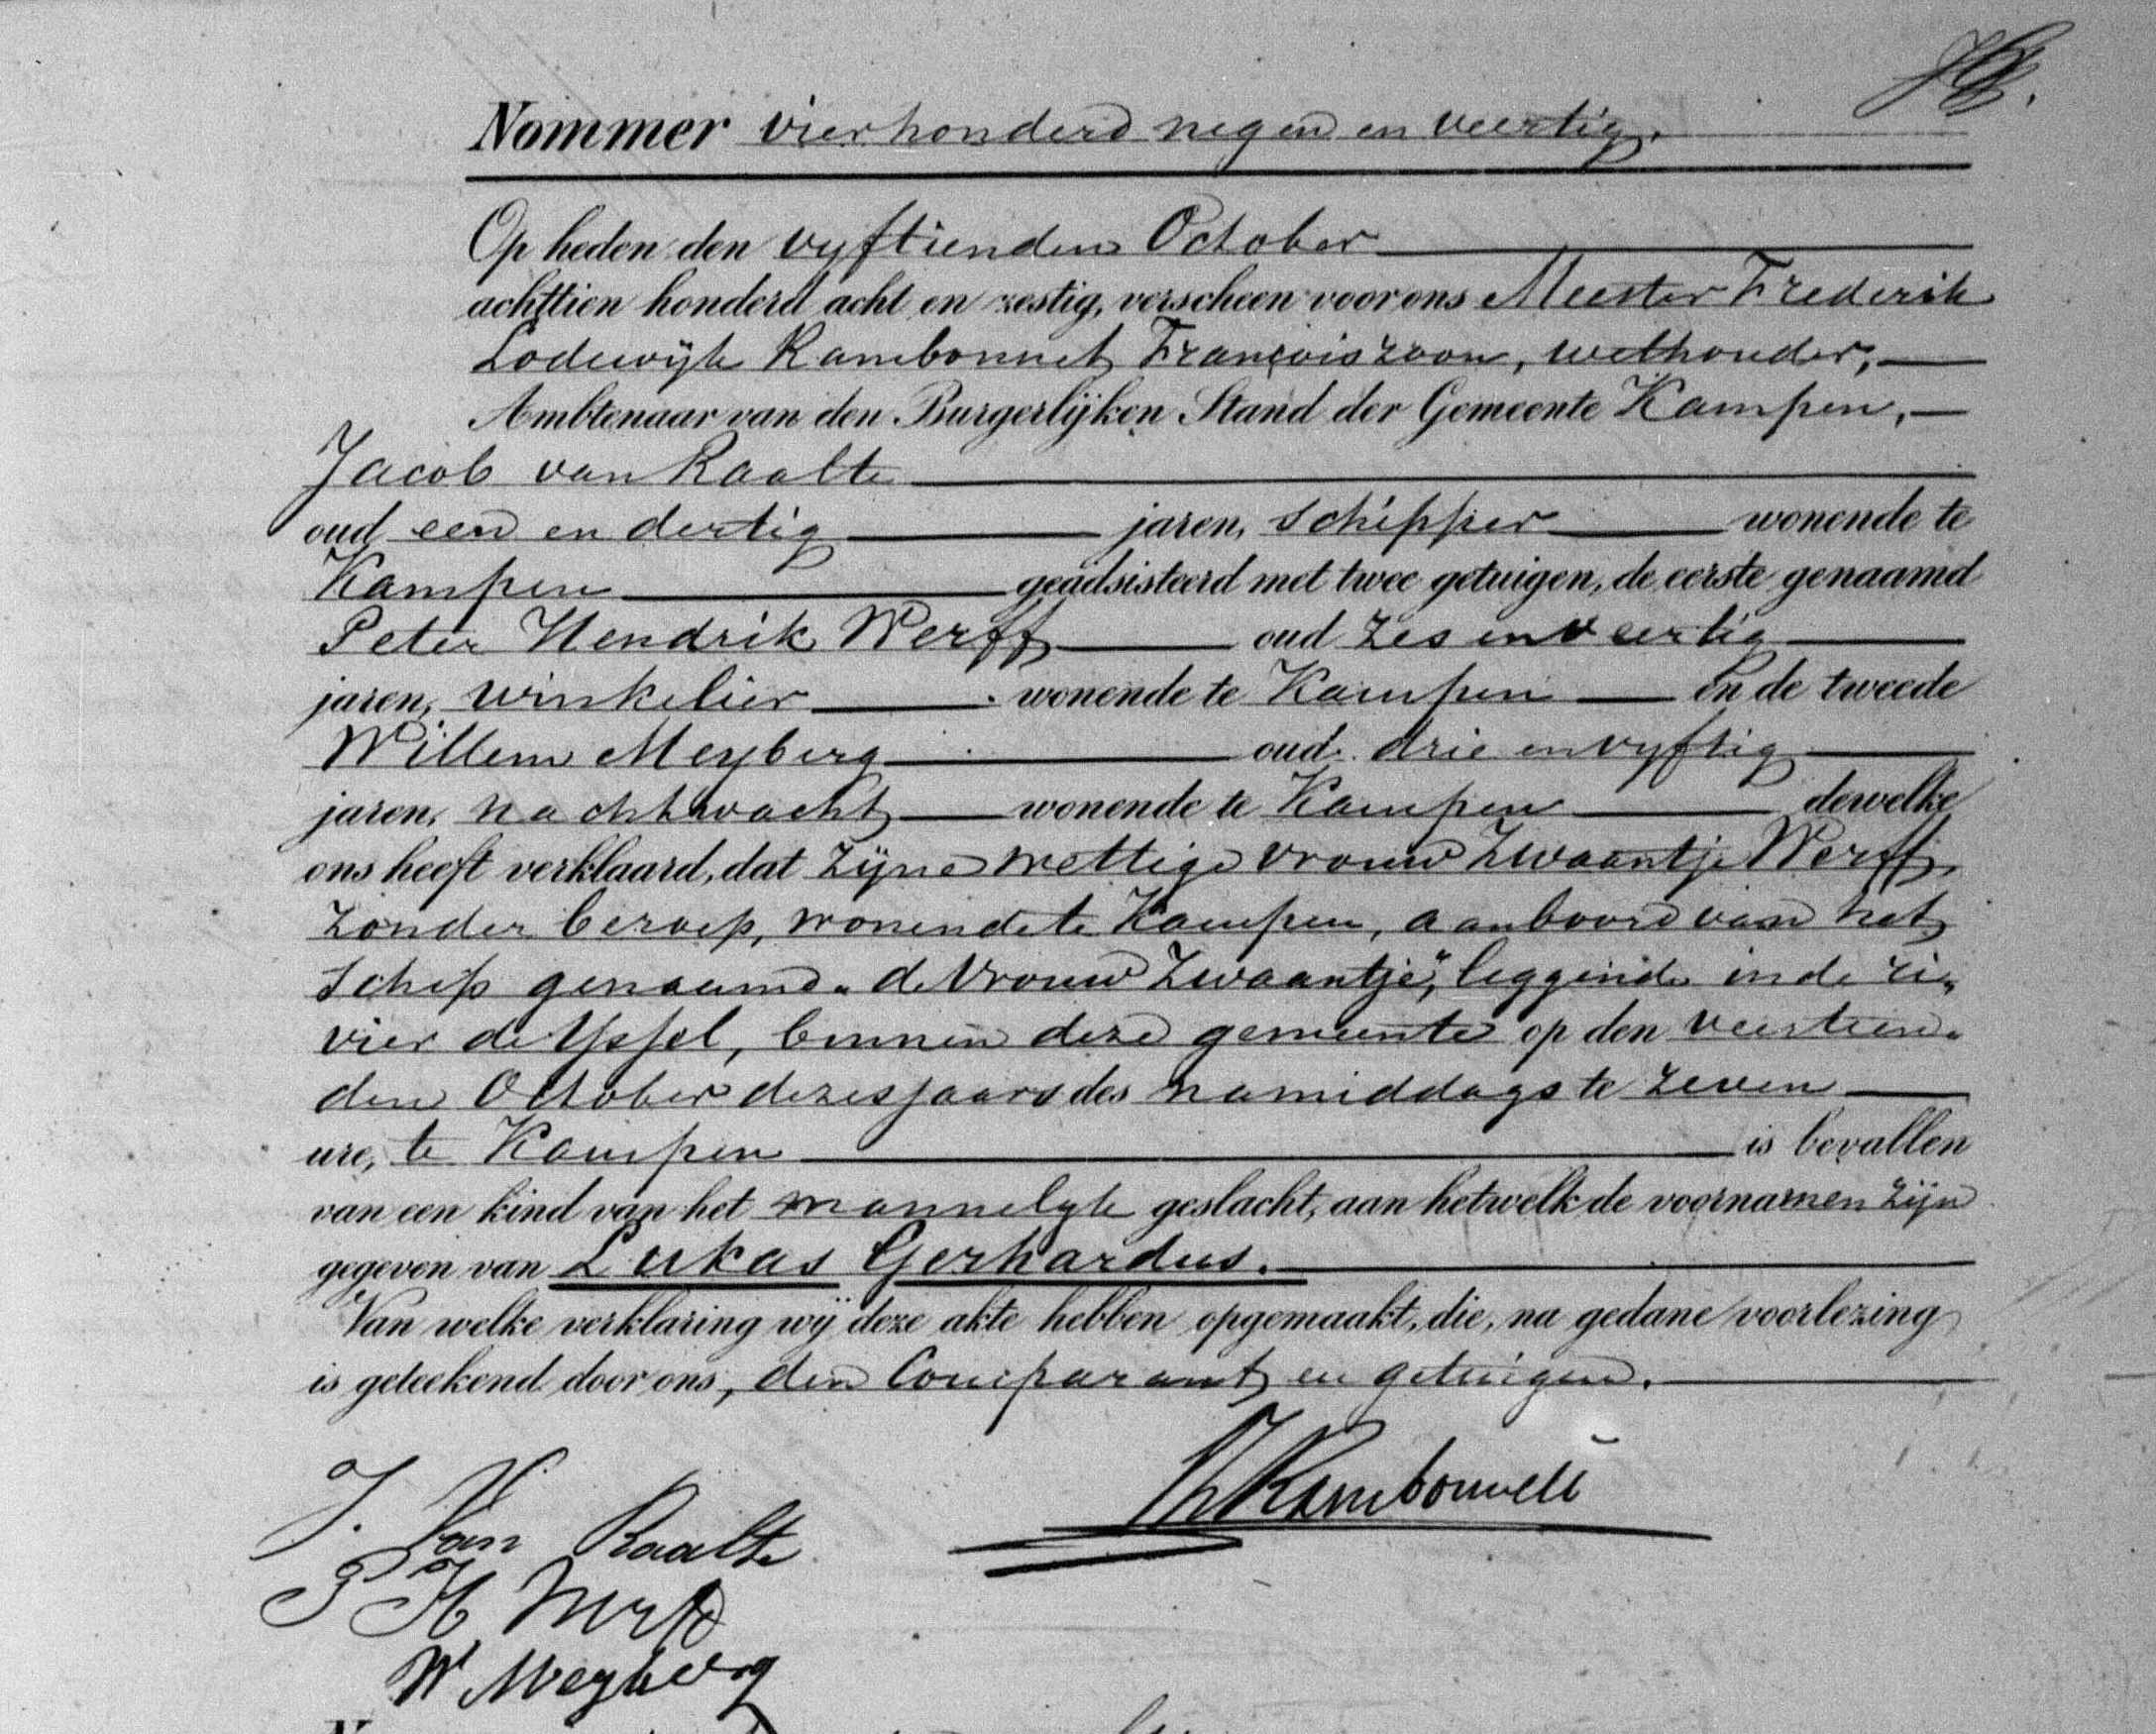 Nommer vierhonderd negen en veertig.
Op heden den vyftienden October
achttien honderd acht en zestig, verscheen voor ons Meester Frederik
Lodewijk Rambonnet Françoiszoon, wethouder,
Ambtenaar van den Burgerlijken Stand der Gemeente Kampen,
Jacob van Raalte
oud een en dertig jaren, schipper wonende te
Kampen geadsisteerd met twee getuigen, de eerste genaamd
Peter Hendrik Werff oud zes en veertig
jaren, winkelier wonende te Kampen en de tweede
Willem Meyberg oud drie en vyftig
jaren, nachtwacht wonende te Kampen dewelke
ons heeft verklaard, dat zijne wettige vrouw Zwaantje Werff,
zonder beroep, wonende te Kampen, aan boord van het
schip genaamd „de Vrouw Zwaantje", leggende in de ri„
vier de Yssel, binnen deze gemeente op den veertien„
den October dezes jaars des namiddags te zeven
ure, te Kampen is bevallen
van een kind van het mannelyk geslacht, aan hetwelk de voornamen zijn
gegeven van Lukas Gerhardus.
Van welke verklaring wij deze akte hebben opgemaakt, die, na gedane voorlezing
is geteekend door ons, den Comparant en getuigen.
J. Van Raalte
Rambonnet
P H Werff
W Meyberg